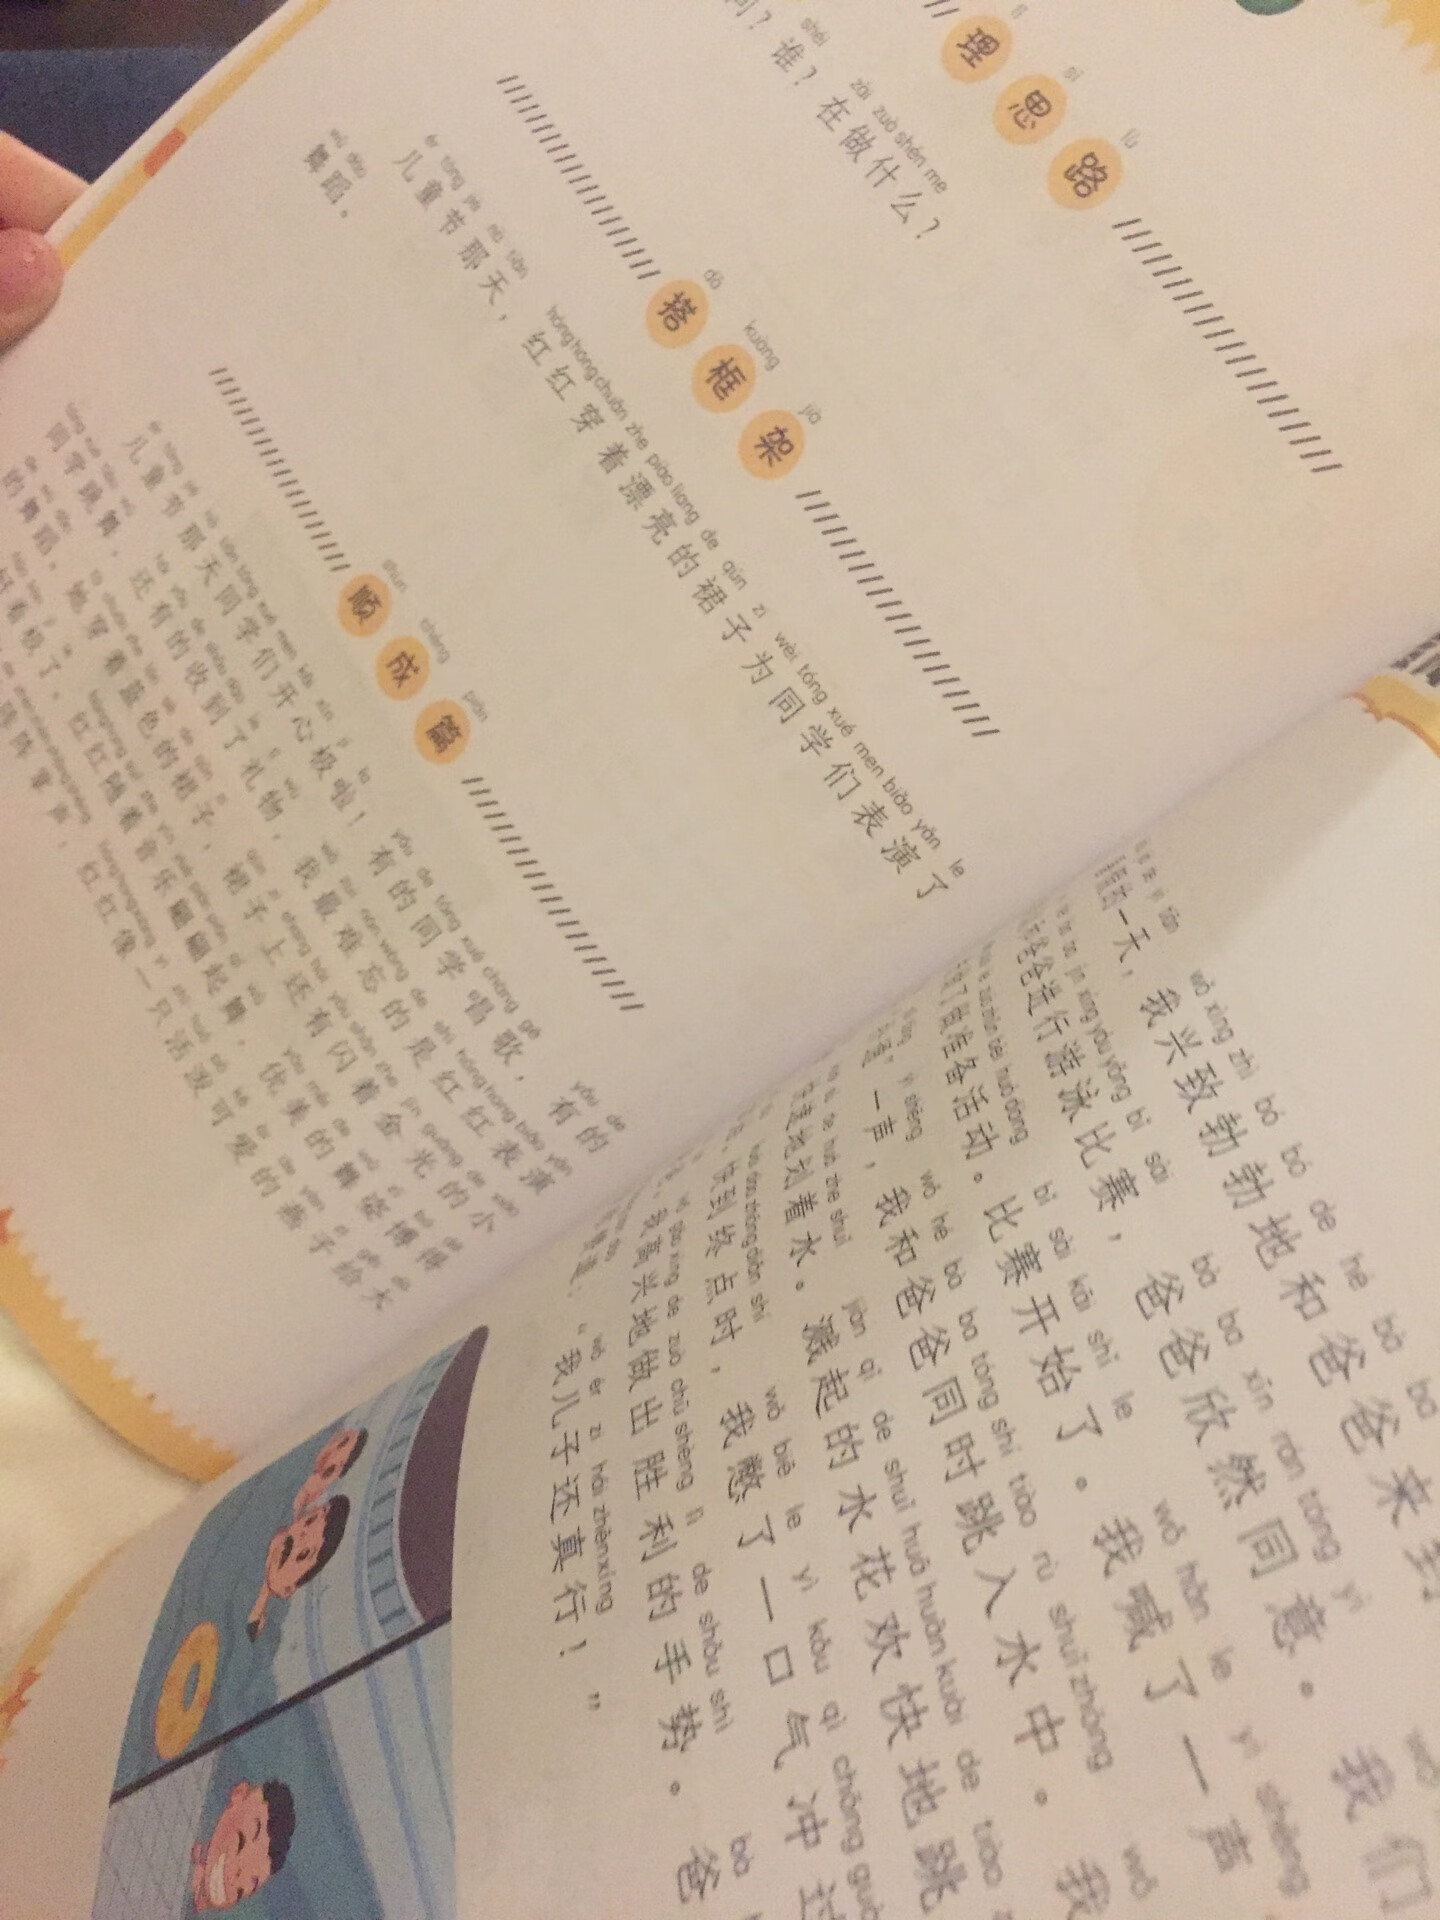 理思路
谁？在做什么？
搭框架
儿童节那天，红红穿着漂亮的裙子为同学们表演了
舞蹈。
顺成篇
儿童节那天同学们开心极啦！有的同学唱歌，有的
同学跳舞，还有的收到了礼物，我最难忘的是红红表演
的舞蹈。她穿着蓝色的裙子，裙子上还有闪着金光的小
好看极了。红红随着音乐翩翩起舞，优美的舞姿博得
阵阵掌声，红红像一只活泼可爱的燕子给大
一天，我兴致勃勃地和爸爸来到
爸爸进行游泳比赛，爸爸欣然同意。我们
了做准备活动。比赛开始了。我喊了一声
一声，我和爸爸同时跳入水中。我
地划着水。溅起的水花欢快地跳
快到终点时，我憋了一口气冲过
我高兴地做出胜利的手势。爸
“我儿子还真行！”